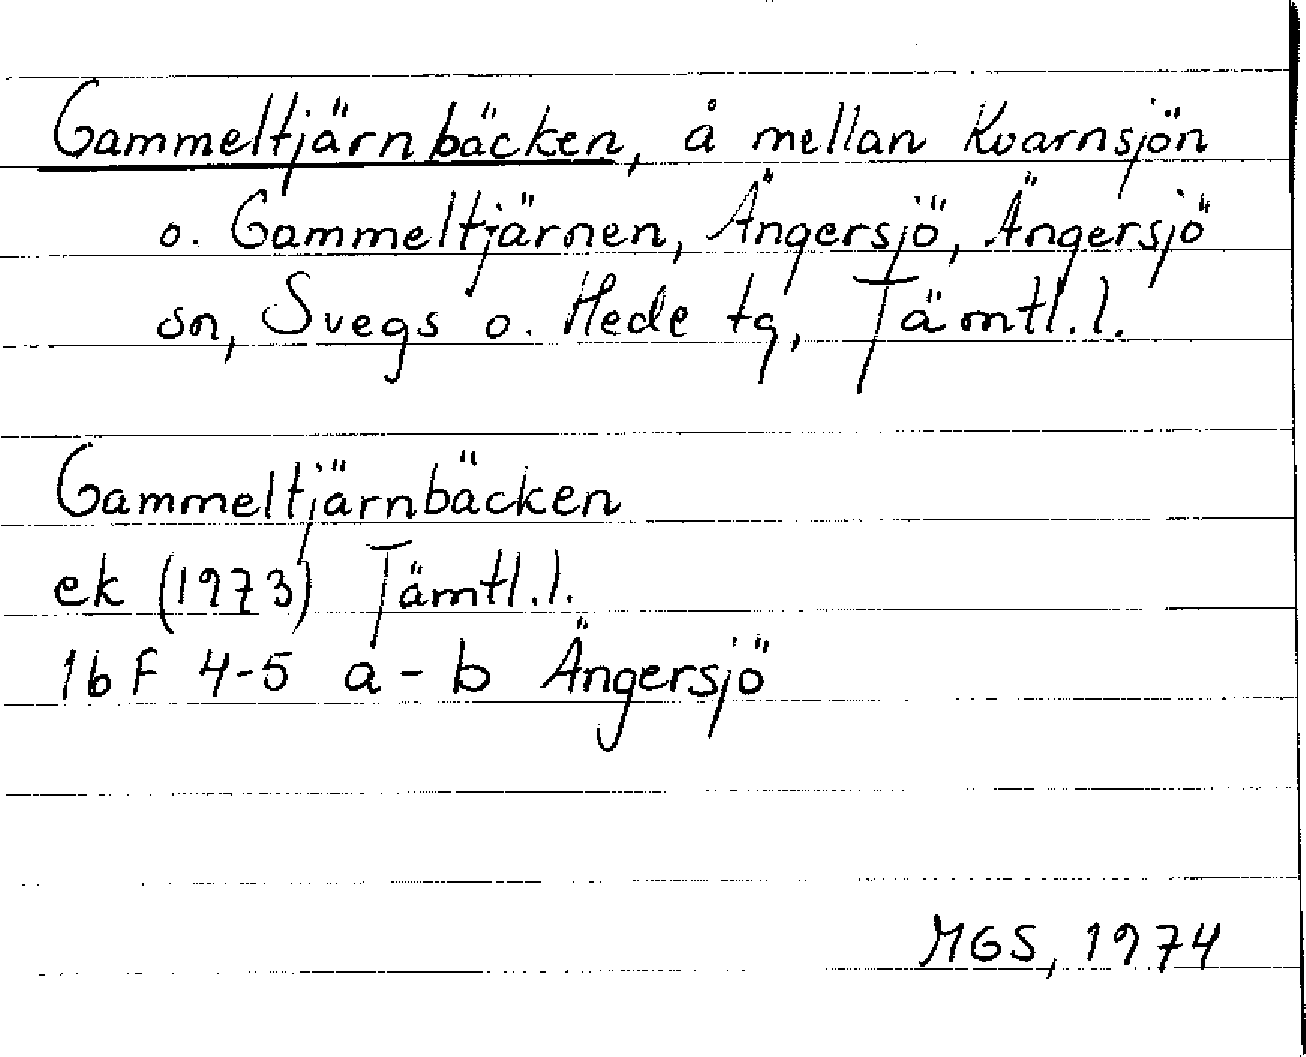 Gammeltjärnbäcken, å mellan Kvarnsjön
o. Gammeltjärnen, Ängersjö, Ängersjö
sn, Svegs o. Hede tg, Jämtl.l.
Gammeltjärnbäcken
ek (1973) Jämtl.l.
16 F 4-5 a-b Ängersjö
MGS, 1974